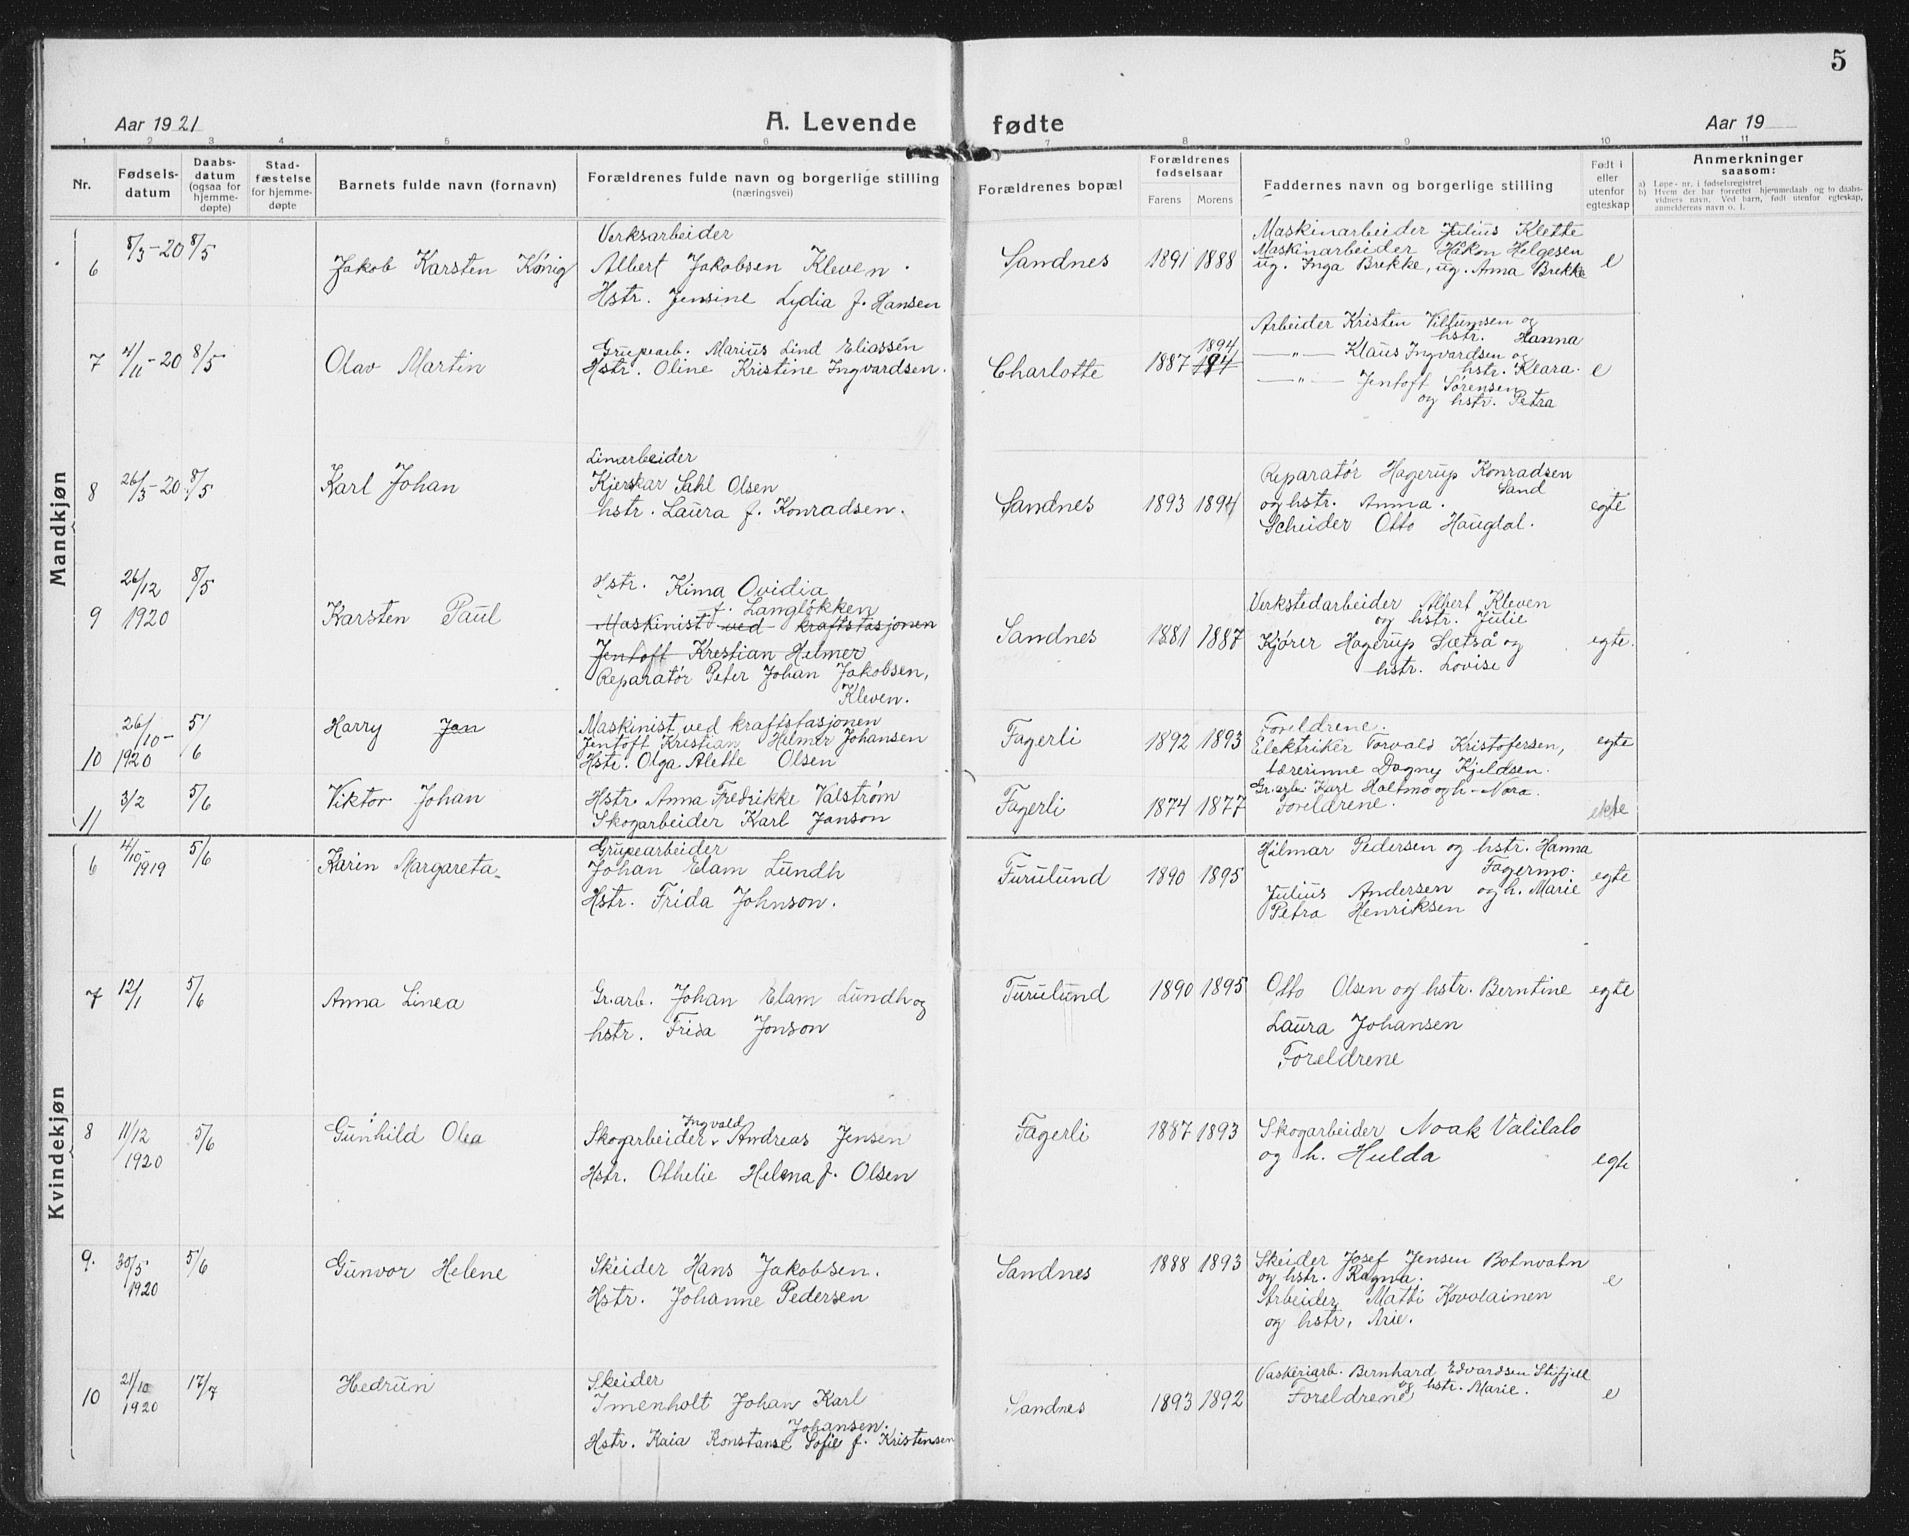 5
Aar 1921
A. Levende fødte
Aar 19
1 2 3 4 5 6 7 8 9 10 11
Nr.
Fødsels-
datum
Daabs-
datum
(ogsaa for
hjemme-
døpte)
Stad-
fæstelse
for hjemme-
døpte
Barnets fulde navn (fornavn)
Forældrenes fulde navn og borgerlige stilling
(næringsvei)
Forældrenes bopæl
Forældrenes
fødselsaar
Farens Morens
Faddernes navn og borgerlige stilling
Født i
eller
utenfor
egteskap
Anmerkninger
saasom:
a) Løpe- nr. i fødselsregistret
b) Hvem der har forrettet hjemmedaab og to daabs-
vidners navn. Ved barn, født utenfor egteskap,
anmelderens navn o. l.
Mandkjøn
6 8/3-20 8/5 Jakob Karsten Kønig
Verksarbeider
Albert Jakobsen Kleven.
Hstr. Jensine Lydia f. Hansen
Sandnes 1891 1888
Maskinarbeider Julius Klette
Maskinarbeider Håkon Helgesen
ug. Inga Brekke, ug. Anna Brekke
e
7 4/11-20 8/5 Olav Martin
Grupearb. Marius Lind Eliassén
Hstr. Oline Kristine Ingvardsen.
Charlotte 1887 1894
Arbeider Kristen Viltumsen og
hstr. Hanna
—"— Klaus Ingvardsen og
hstr. Klara.
—"— Jentoft Sørensen
og hstr. Petra
e
8 26/3-20 8/5 Karl Johan
Linarbeider
Kjerskar Sahl Olsen
hstr. Laura f. Konradsen.
Sandnes 1893 1894
Reparatør Hagerup Konradsen
Sand
og hstr. Anna.
Scheider Otto Haugdal.
egte
9 26/12 1920 8/5 Karsten Paul
Hstr. Kima Ovidia
f. Langløkken
Maskinist ved kraftstasjonen
Jentoft Krestian Helmer
Reparatør Peter Johan Jakobsen,
Kleven.
Sandnes 1881 1887
Verkstedarbeider Albert Kleven
og hstr. Julie
Kjører Hagerup Sætså og
hstr. Lovise
egte.
10 26/10-1920 5/6 Harry Jan
Maskinist ved kraftstasjonen
Jentoft Kristian Helmer Johansen
Hstr. Olga Alette Olsen
Fagerli 1892 1893
Foreldrene.
Elektriker Torvald Kristofersen,
lærerinne Dagny Kjeldsen.
egte
11 3/2 5/6 Viktor Johan
Hstr. Anna Fredrikke Valstrøm
Skogarbeider Karl Janson
Fagerli 1874 1877
Gr.arb. Karl Holtmo og h- Nora.
Foreldrene.
ekte
Kvindekjøn
6 4/10-1919 5/6 Karin Margareta
Grupearbeider
Johan Elam Lundh
Hstr. Frida Johnson.
Furulund 1890 1895
Hilmar Pedersen og hstr. Hanna
Fagermo.
Julius Andersen og h. Marie
Petra Henriksen
egte
7 12/1 5/6 Anna Linea
Gr.arb. Johan Elam Lundh og
hstr. Frida Jonson
Furulund 1890 1895
Otto Olsen og hstr. Berntine
Laura Johansen
Foreldrene
egte
8 11/12 1920 5/6 Gunhild Olea
Ingvald
Skogarbeider Andreas Jensen
Hstr. Othelie Helena f. Olsen
Fagerli 1887 1893
Skogarbeider Noak Valilalo
og h. Hulda
egte
9. 30/5 1920 5/6 Gunvor Helene
Skeider Hans Jakobsen.
Hstr. Johanne Pedersen
Sandnes 1888 1893
Skeider Josef Jensen Botnvatn
og hstr. Ragna.
Arbeider Matti Kovolainen
og hstr, Arie.
e
10 21/10 1920 17/7 Hedrun
Skeider
Imenholt Johan Karl
Johansen.
Hstr. Kaia Konstanse Sofie f. Kristensen
Sandnes 1893 1892
Vaskeriarb. Bernhard Edvardsen Stifjell
og hstr. Marie.
Foreldrene
e